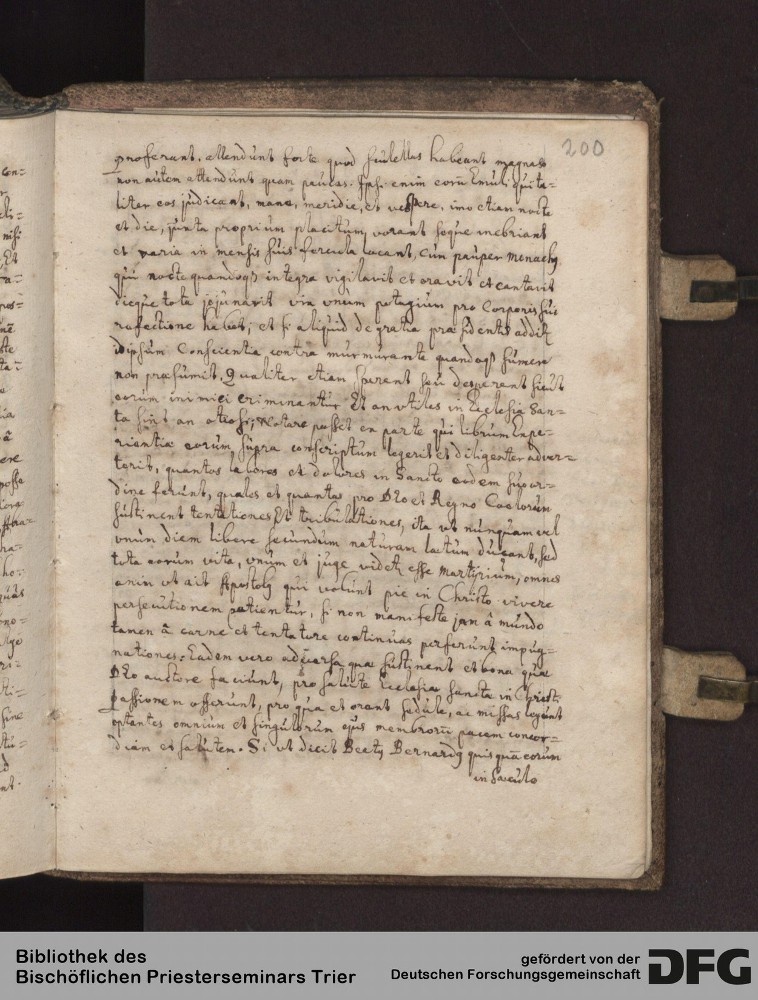 200
proferant. attendunt forte quod scutellas habeant magnas
non autem attendunt quam paucas. Ipsi enim eorū Emuli, qui ta-
liter eos judicant, mane, meridie, et vespere, imo etiam nocte
et die, juxta proprium placitum, vorant seque inebriant
et varia in mensis suis fercula locant, cùm pauper Monachꝰ
qui nocte quandoqꝫ integra vigilavit et oravit et cantavit
dieque tota jejunavit vix unum potagium pro Corporis sui
refectione habet, et si aliquid de gratia præsidentis additꝛ
idipsum Conscientia contra murmurante quandoqꝫ sumere
non præsumit. Qualiter etiam sperent seu desperent sicut
eorum inimici criminantur Et an utiles in Ecclesia San-
ta sint an otiosi; Notare posset ex parte qui librum Expe-
rientiæ eorum, supra conscriptum legerit et diligenter adver-
terit, quantos labores et dolores in Sancto eodem suo or-
dine ferunt, quales et quantas pro Deo et Regno Coelorum
sustinent tentationes Et tribulationes, ita ut nunquam vel
unum diem libere secundum naturam lætum ducant, sed
tota eorum vita, unum et juge videtꝛ esse martyrium, omnes
enim ut ait Apostolꝰ qui volunt pie in Christo vivere
persecutionem patientur, si non manifeste jam â mundo
tamen â carne et tentatore continuas perferunt impug-
nationes. Eadem vero adversa quæ sustinent et bona quæ
Deo auctore faciunt, pro salute Ecclesiæ sanctæ in Christi
passionem offerunt, pro qua et orant sedule, ac missas legunt
optantes omnium et singulorum ejus membrorū pacem concor-
diam et salutem. Si ut dicit Beatꝰ Bernardꝰ quisquā eorum
in sæculo
Bibliothek des
Bischöflichen Priesterseminars Trier
gefördert von der
Deutschen Forschungsgemeinschaft
DFG